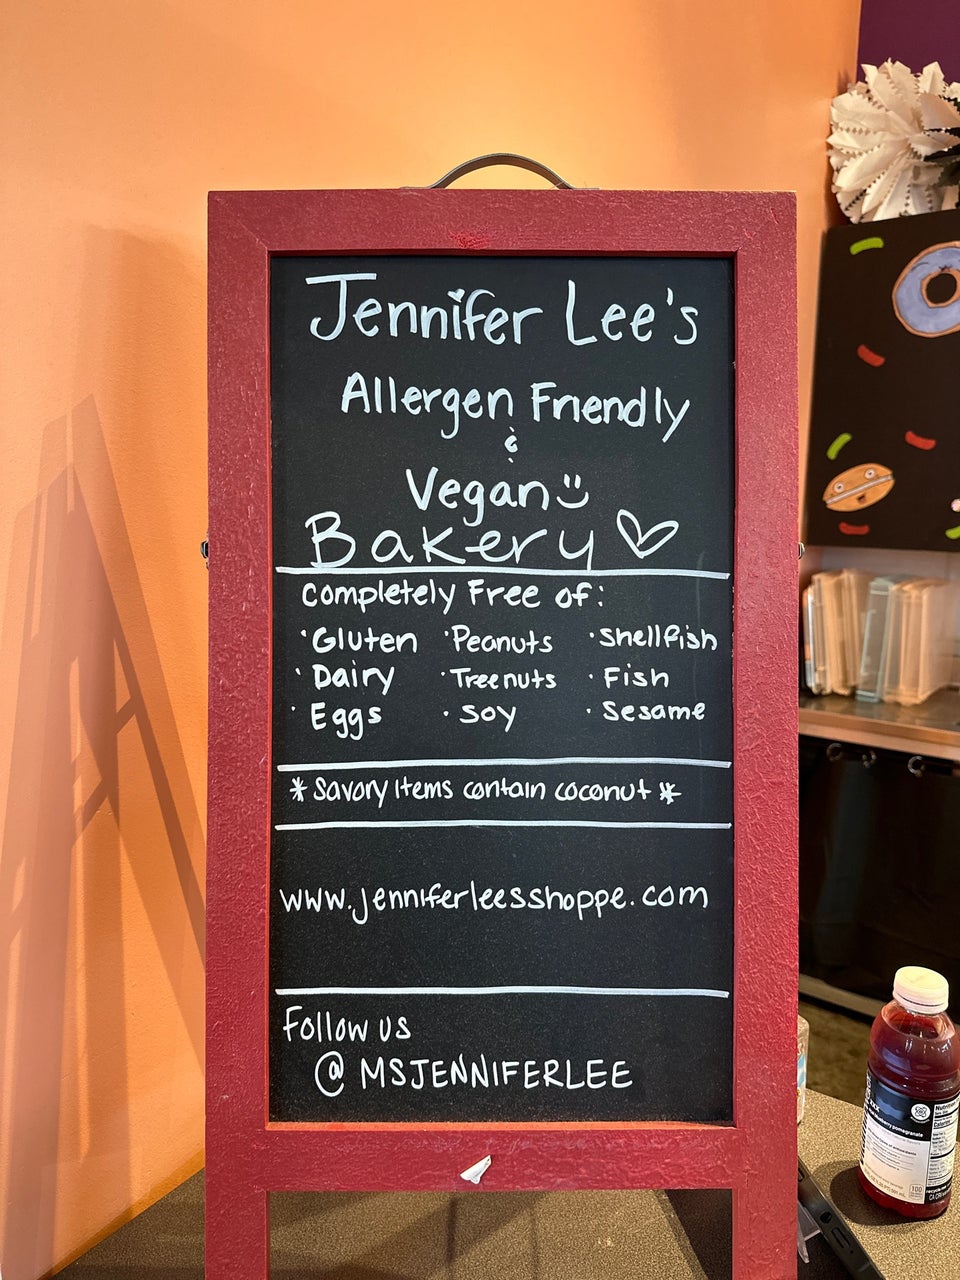 Jennifer Lee's
Allergen Friendly
&
Vegan
Bakery
Completely Free of:
· Gluten · Peanuts · Shellfish
· Dairy · Treenuts · Fish
· Eggs · Soy · Sesame
* Savory items contain coconut *
www.jenniferleesshoppe.com
Follow us
@ MSJENNIFERLEE
XXX